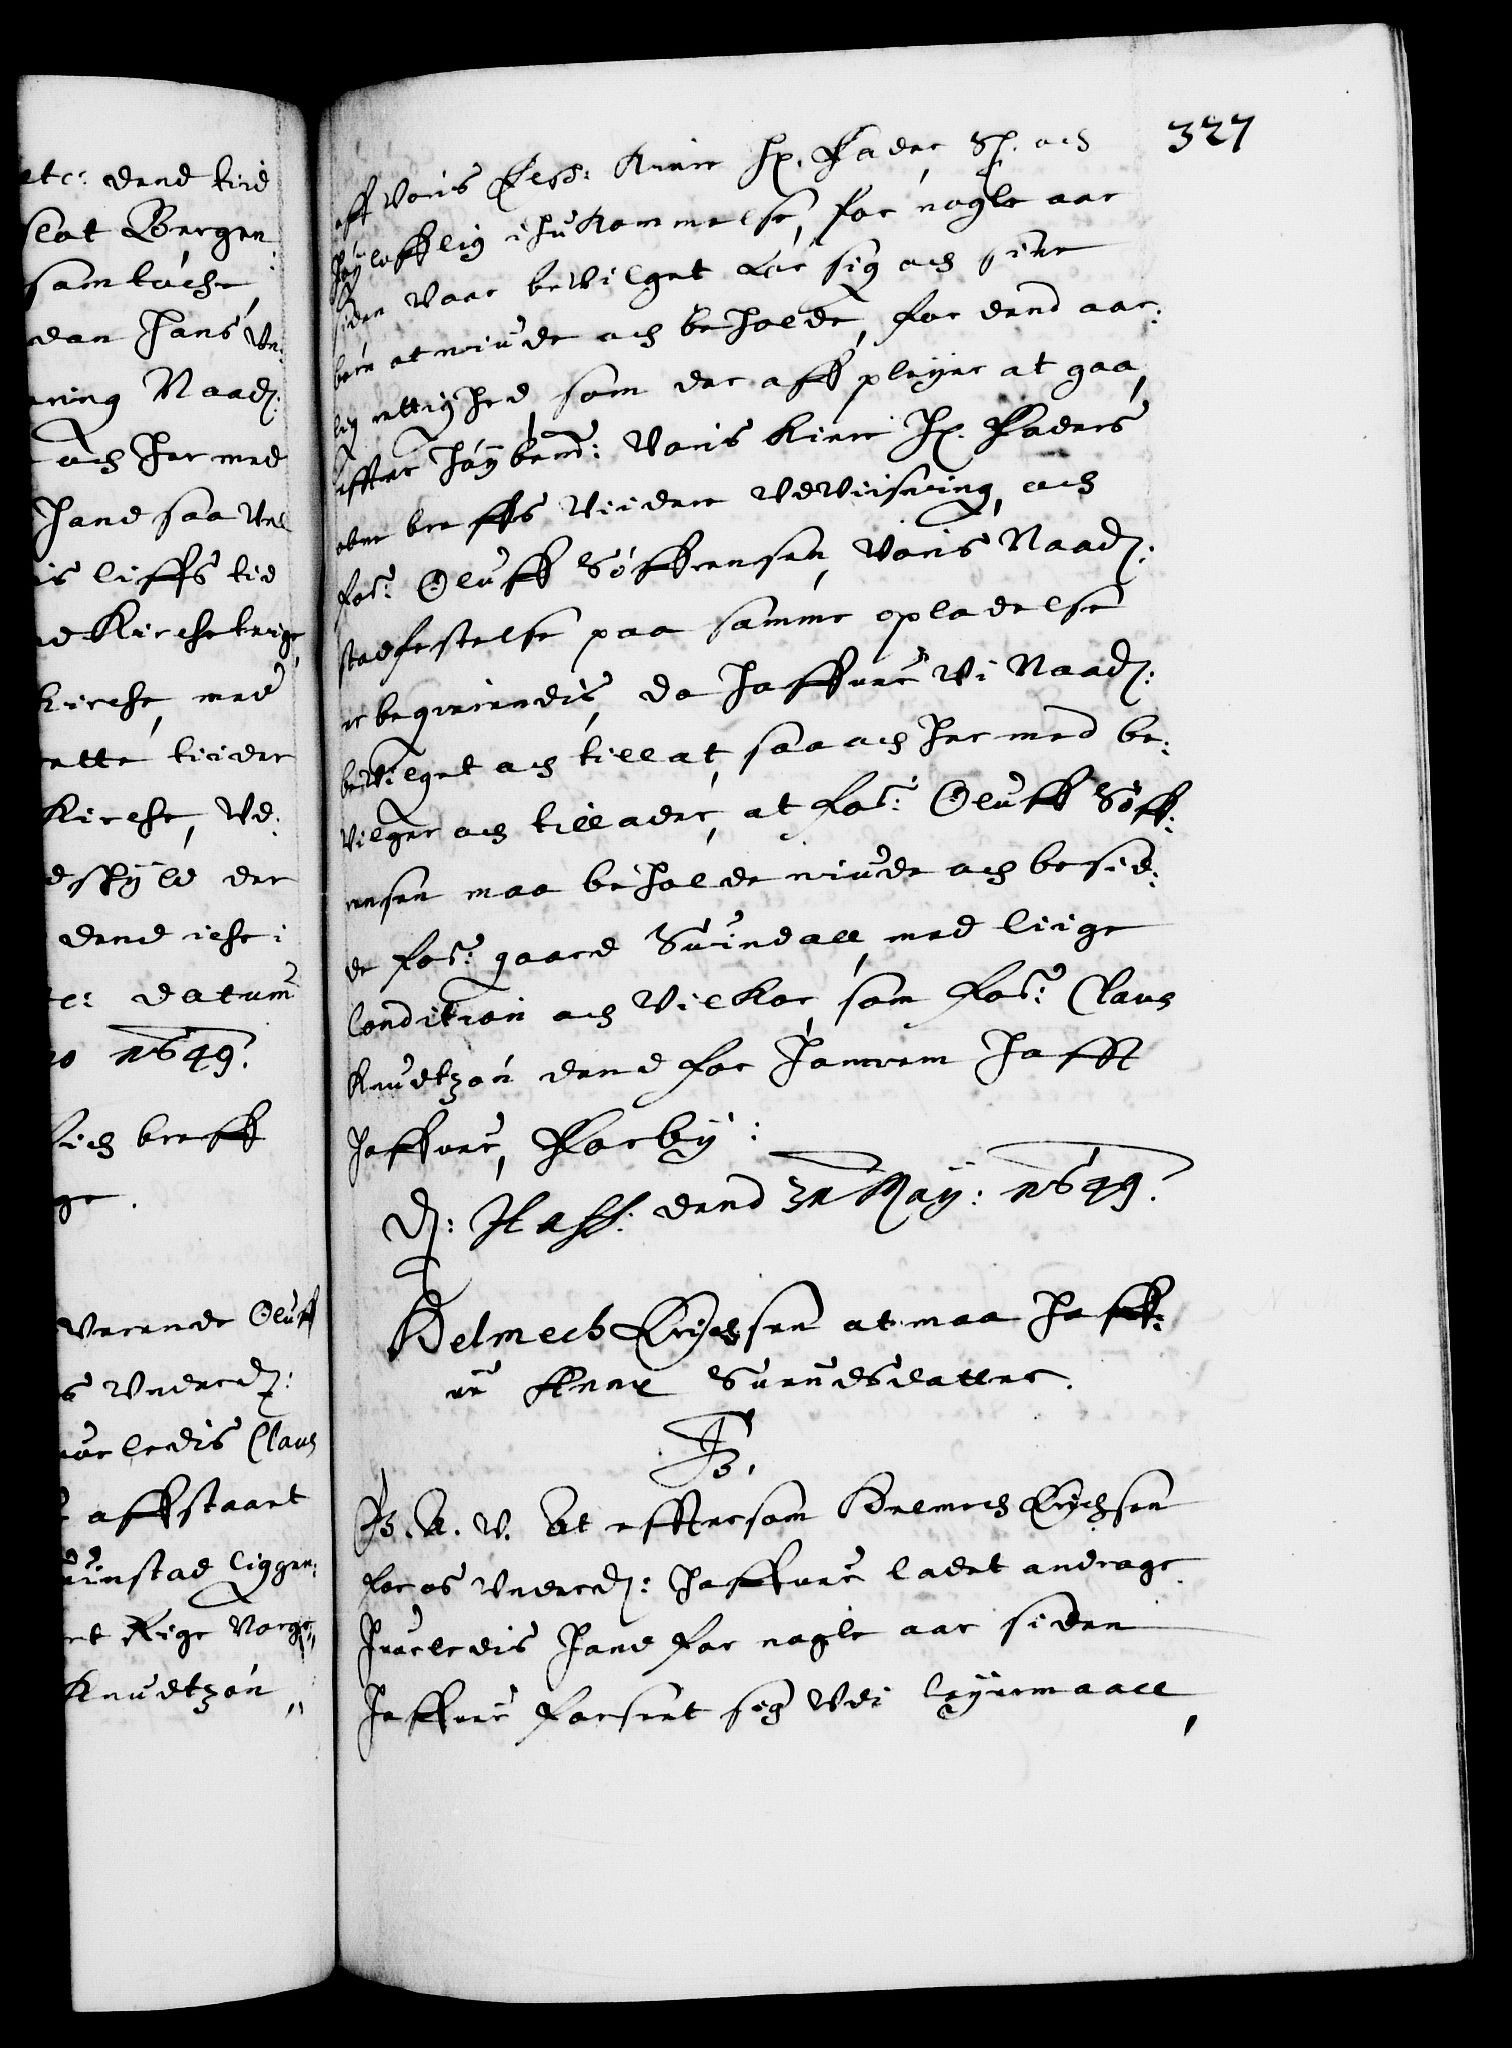 etc: dend tiid
slot Bergen
samtøche
dan hans Un:
ring Naad:
och her med
hand saa vel
is liffs tid
d Kirchetrige
Kirche, med
rette tiider
Kirche, vd:
d skyld der
dend iche i
e: datum
o 1649.
lich breff
ge.
verende Oluff
s Underd:
uorledis Claus
affstaaet
unstad liggen:
rt Rige Norge
Knudtzøn
327
aff Voris Elsch: Kiere Hr. Fader, Sl. och
høylofflig ihukommelse, for nogle aar
siden vaar bevilget for sig och sine
børn at niude och beholde, for dend aar:
lig rettighed, som der aff pleyer at gaa,
effter høybemt: Voris Kiere Hr. Faders
obne breffs viidere Udviisning, och
for: Oluff Søffrensen, Voris Naad:
stadfestelse paa samme opladelse
er begierendis, da haffuer Vi Naad:
bevilget och tilladt, saa och her med be:
vilger och tillader, at for: Oluff Søff:
rensen maa beholde niude och besid:
de for: gaard Suindall, med liige
Condition och Vilkor, som for: Claus
Knudtzøn dend for hannem hafft
haffuer, Forby:
D: Haff: dend 31 May: 1649.
Helmech Erichsen at maa haff:
ue Anne Suendsdatter.
F3.
F3. A. V. At efftersom Helmech Erichsen
for os Underd: haffuer ladet andrage
huorledis hand for nogle aar siden
haffuer forseet sig Udi leyermaall,